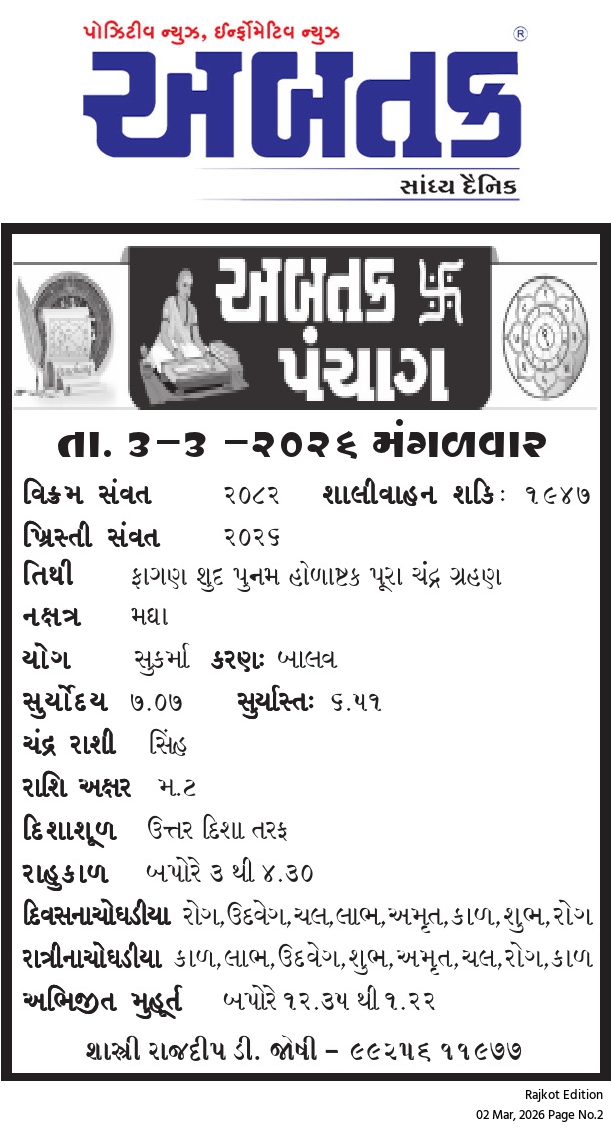 પોઝિટીવ ન્યુઝ, ઈન્ફોર્મેટિવ ન્યુઝ
અબતક ®
સાંધ્ય દૈનિક
અબતક 卐
પંચાગ
તા. ૩-૩ -૨૦૨૬ મંગળવાર
વિક્રમ સંવત ૨૦૮૨ શાલીવાહન શકિ: ૧૯૪૭
ખ્રિસ્તી સંવત ૨૦૨૬
તિથી ફાગણ શુદ પુનમ હોળાષ્ટક પૂરા ચંદ્ર ગ્રહણ
નક્ષત્ર મઘા
યોગ સુકર્મા કરણ: બાલવ
સુર્યોદય ૭.૦૭ સુર્યાસ્ત: ૬.૫૧
ચંદ્ર રાશી સિંહ
રાશિ અક્ષર મ.ટ
દિશાશૂળ ઉત્તર દિશા તરફ
રાહુકાળ બપોરે ૩ થી ૪.૩૦
દિવસનાચોઘડીયા રોગ,ઉદવેગ,ચલ,લાભ,અમૃત,કાળ,શુભ,રોગ
રાત્રીનાચોઘડીયા કાળ,લાભ,ઉદવેગ,શુભ,અમૃત,ચલ,રોગ,કાળ
અભિજીત મુહૂર્ત બપોરે ૧૨.૩૫ થી ૧.૨૨
શાસ્ત્રી રાજદીપ ડી. જોષી – ૯૯૨૫૬ ૧૧૯૭૭
Rajkot Edition
02 Mar, 2026 Page No.2